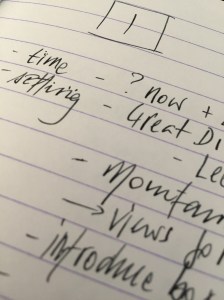 1
- time - ? now +
- setting - Great Di
- Le
- Mountai
→ views fo
- introduce